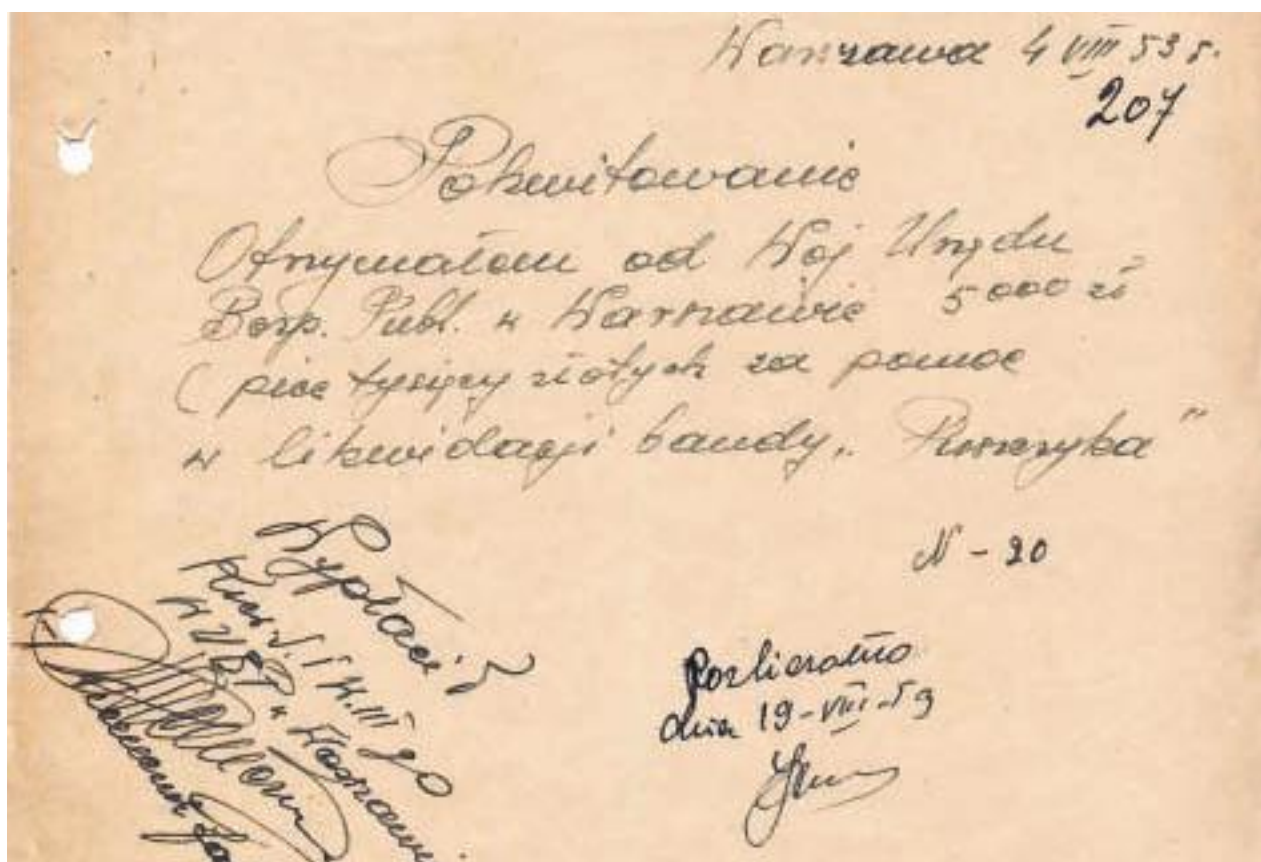 Warszawa 4 VIII 53 r.
207
Pokwitowanie
Otrzymałem od Woj Urzędu
Bezp. Publ. w Warszawie 5000 zł
(pięć tysięcy złotych za pomoc
w likwidacji bandy „Puszczyka"
N-20
Wypłacić
Kier. S. I W. III go
WUBP w Warszawie
Rozliczono
dnia 19-VIII-53